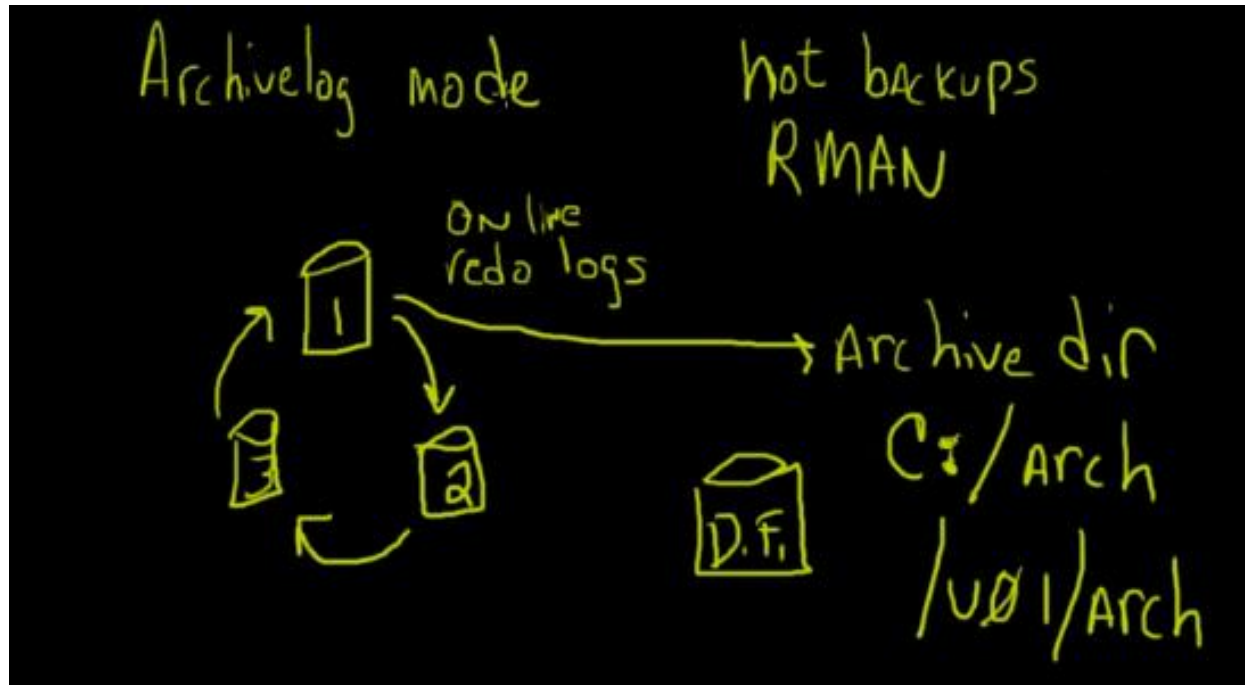 Archivelog mode
hot bACKups
RMAN
ON line
redo logs
1
2
3
Archive dir
C:/Arch
D.F.
/u01/Arch